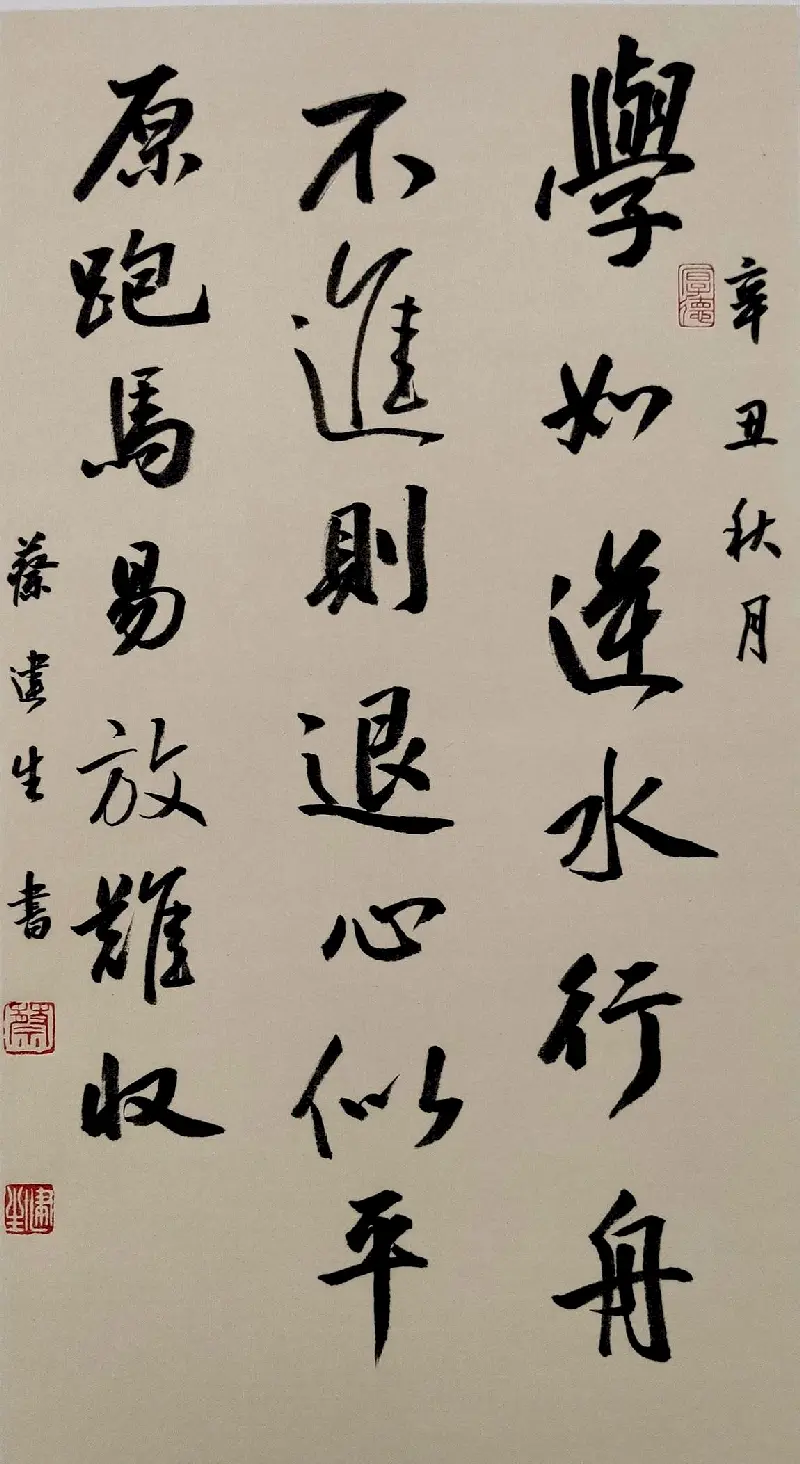 辛丑秋月
厚德
學如逆水行舟
不進則退心似平
原跑馬易放難收
蔡建生書
蔡
建生